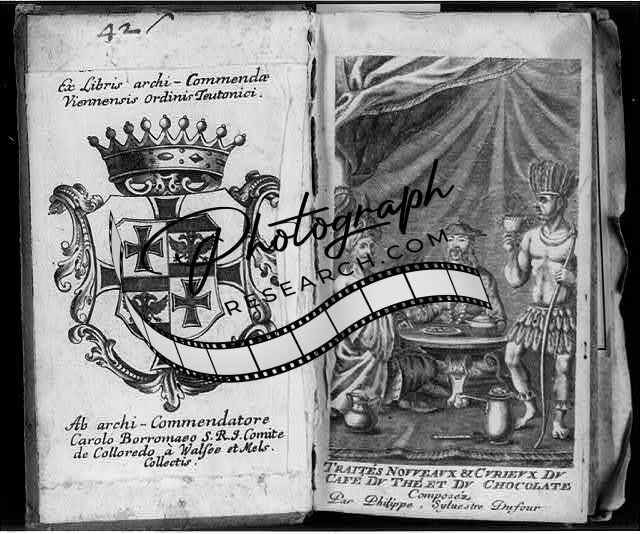 42
Ex Libris archi-Commendæ
Viennensis Ordinis Teutonici.
Ab archi-Commendatore
Carolo Borromaeo S.R.I. Comite
de Colloredo à Walsee et Mels.
Collectis.
Photograph
RESEARCH.COM
TRAITÉS NOUVEAUX & CURIEUX DU
CAFÉ DU THÉ ET DU CHOCOLATE
Composéz
Par Philippe Sylvestre Dufour